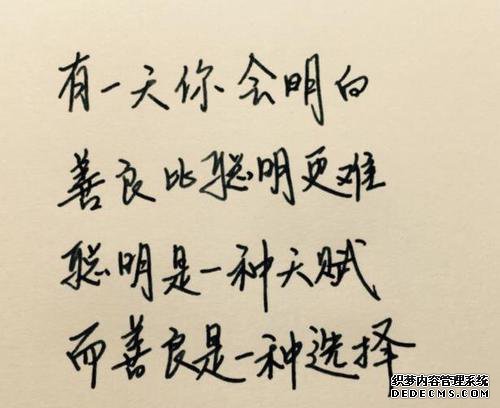 有一天你会明白
善良比聪明更难
聪明是一种天赋
而善良是一种选择
织梦内容管理系统
DEDECMS.COM